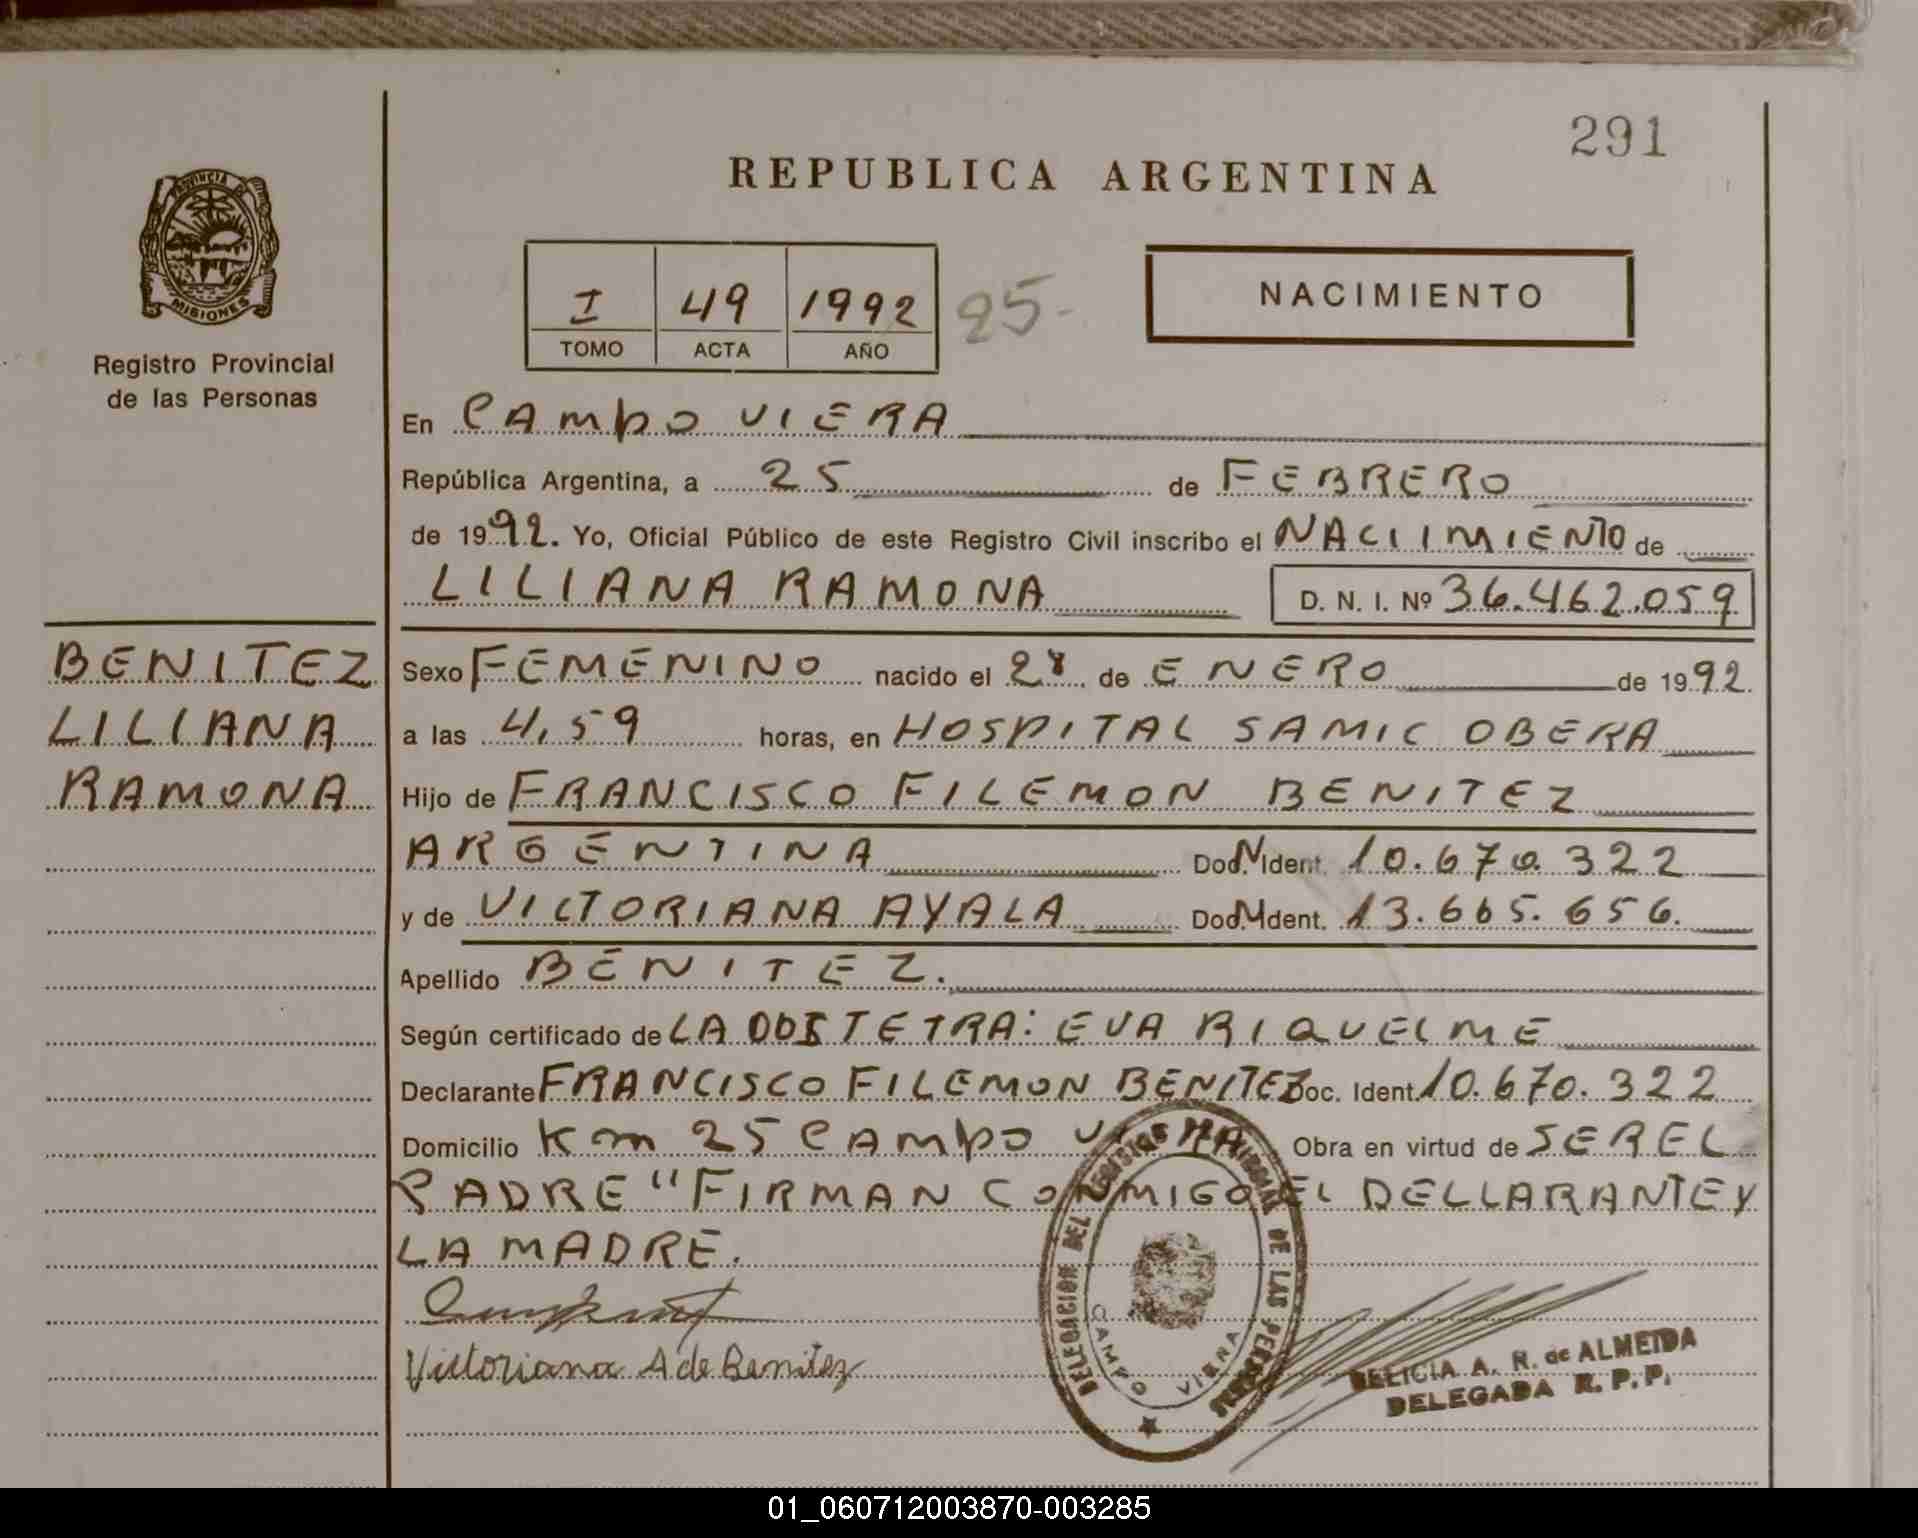 291
REPUBLICA ARGENTINA
PROVINCIA DE
MISIONES
Registro Provincial
de las Personas
I 49 1992 25-
TOMO ACTA AÑO
NACIMIENTO
En CAMPO VIERA
República Argentina, a 25 de FEBRERO
de 1992. Yo, Oficial Público de este Registro Civil inscribo el NACIIMIENTO de
LILIANA RAMONA D. N. I. Nº 36.462.059
BENITEZ
LILIANA
RAMONA
Sexo FEMENINO nacido el 28 de ENERO de 1992.
a las 4,59 horas, en HOSPITAL SAMIC OBERA
Hijo de FRANCISCO FILEMON BENITEZ
ARGENTINA Doc.N.Ident. 10.670.322
y de VICTORIANA AYALA Doc.N.Ident. 13.665.656.
Apellido BENITEZ.
Según certificado de LA OBSTETRA: EVA RIQUELME
Declarante FRANCISCO FILEMON BENITEZ Doc. Ident. 10.670.322
Domicilio Km 25 CAMPO VIERA Obra en virtud de SER EL
PADRE "FIRMAN CONMIGO EL DECLARANTE Y
LA MADRE.
Victoriana A de Benitez
DELEGACION DEL REGISTRO PROVINCIAL DE LAS PERSONAS
CAMPO VIERA
DELICIA A. R. de ALMEIDA
DELEGADA R. P. P.
01_060712003870-003285